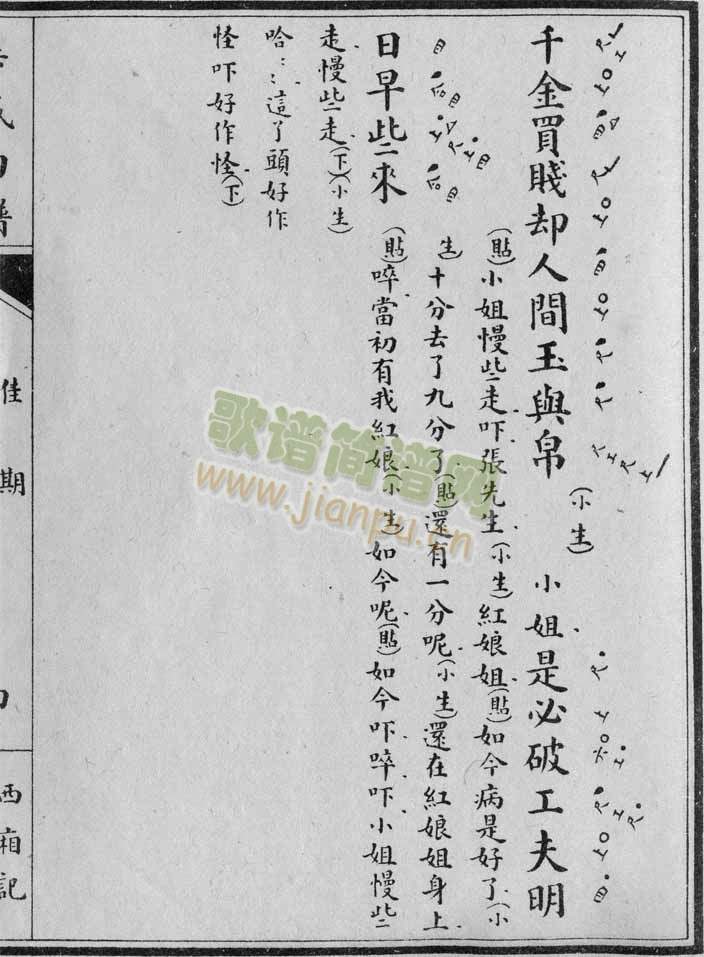 千金買賤却人間玉與帛(小生)小姐是必破工夫明
(貼)小姐慢些走吓張先生(小生)紅娘姐(貼)如今病是好了(小
生)十分去了九分了(貼)還有一分呢(小生)還在紅娘姐身上
日早些來(貼)啐當初有我紅娘(小生)如今呢(貼)如今吓啐吓小姐慢些
走慢些走(下)(小生)
哈:﹕這了頭好作
怪吓好作怪(下)
佳期
西廂記
歌谱简谱网
www.jianpu.cn